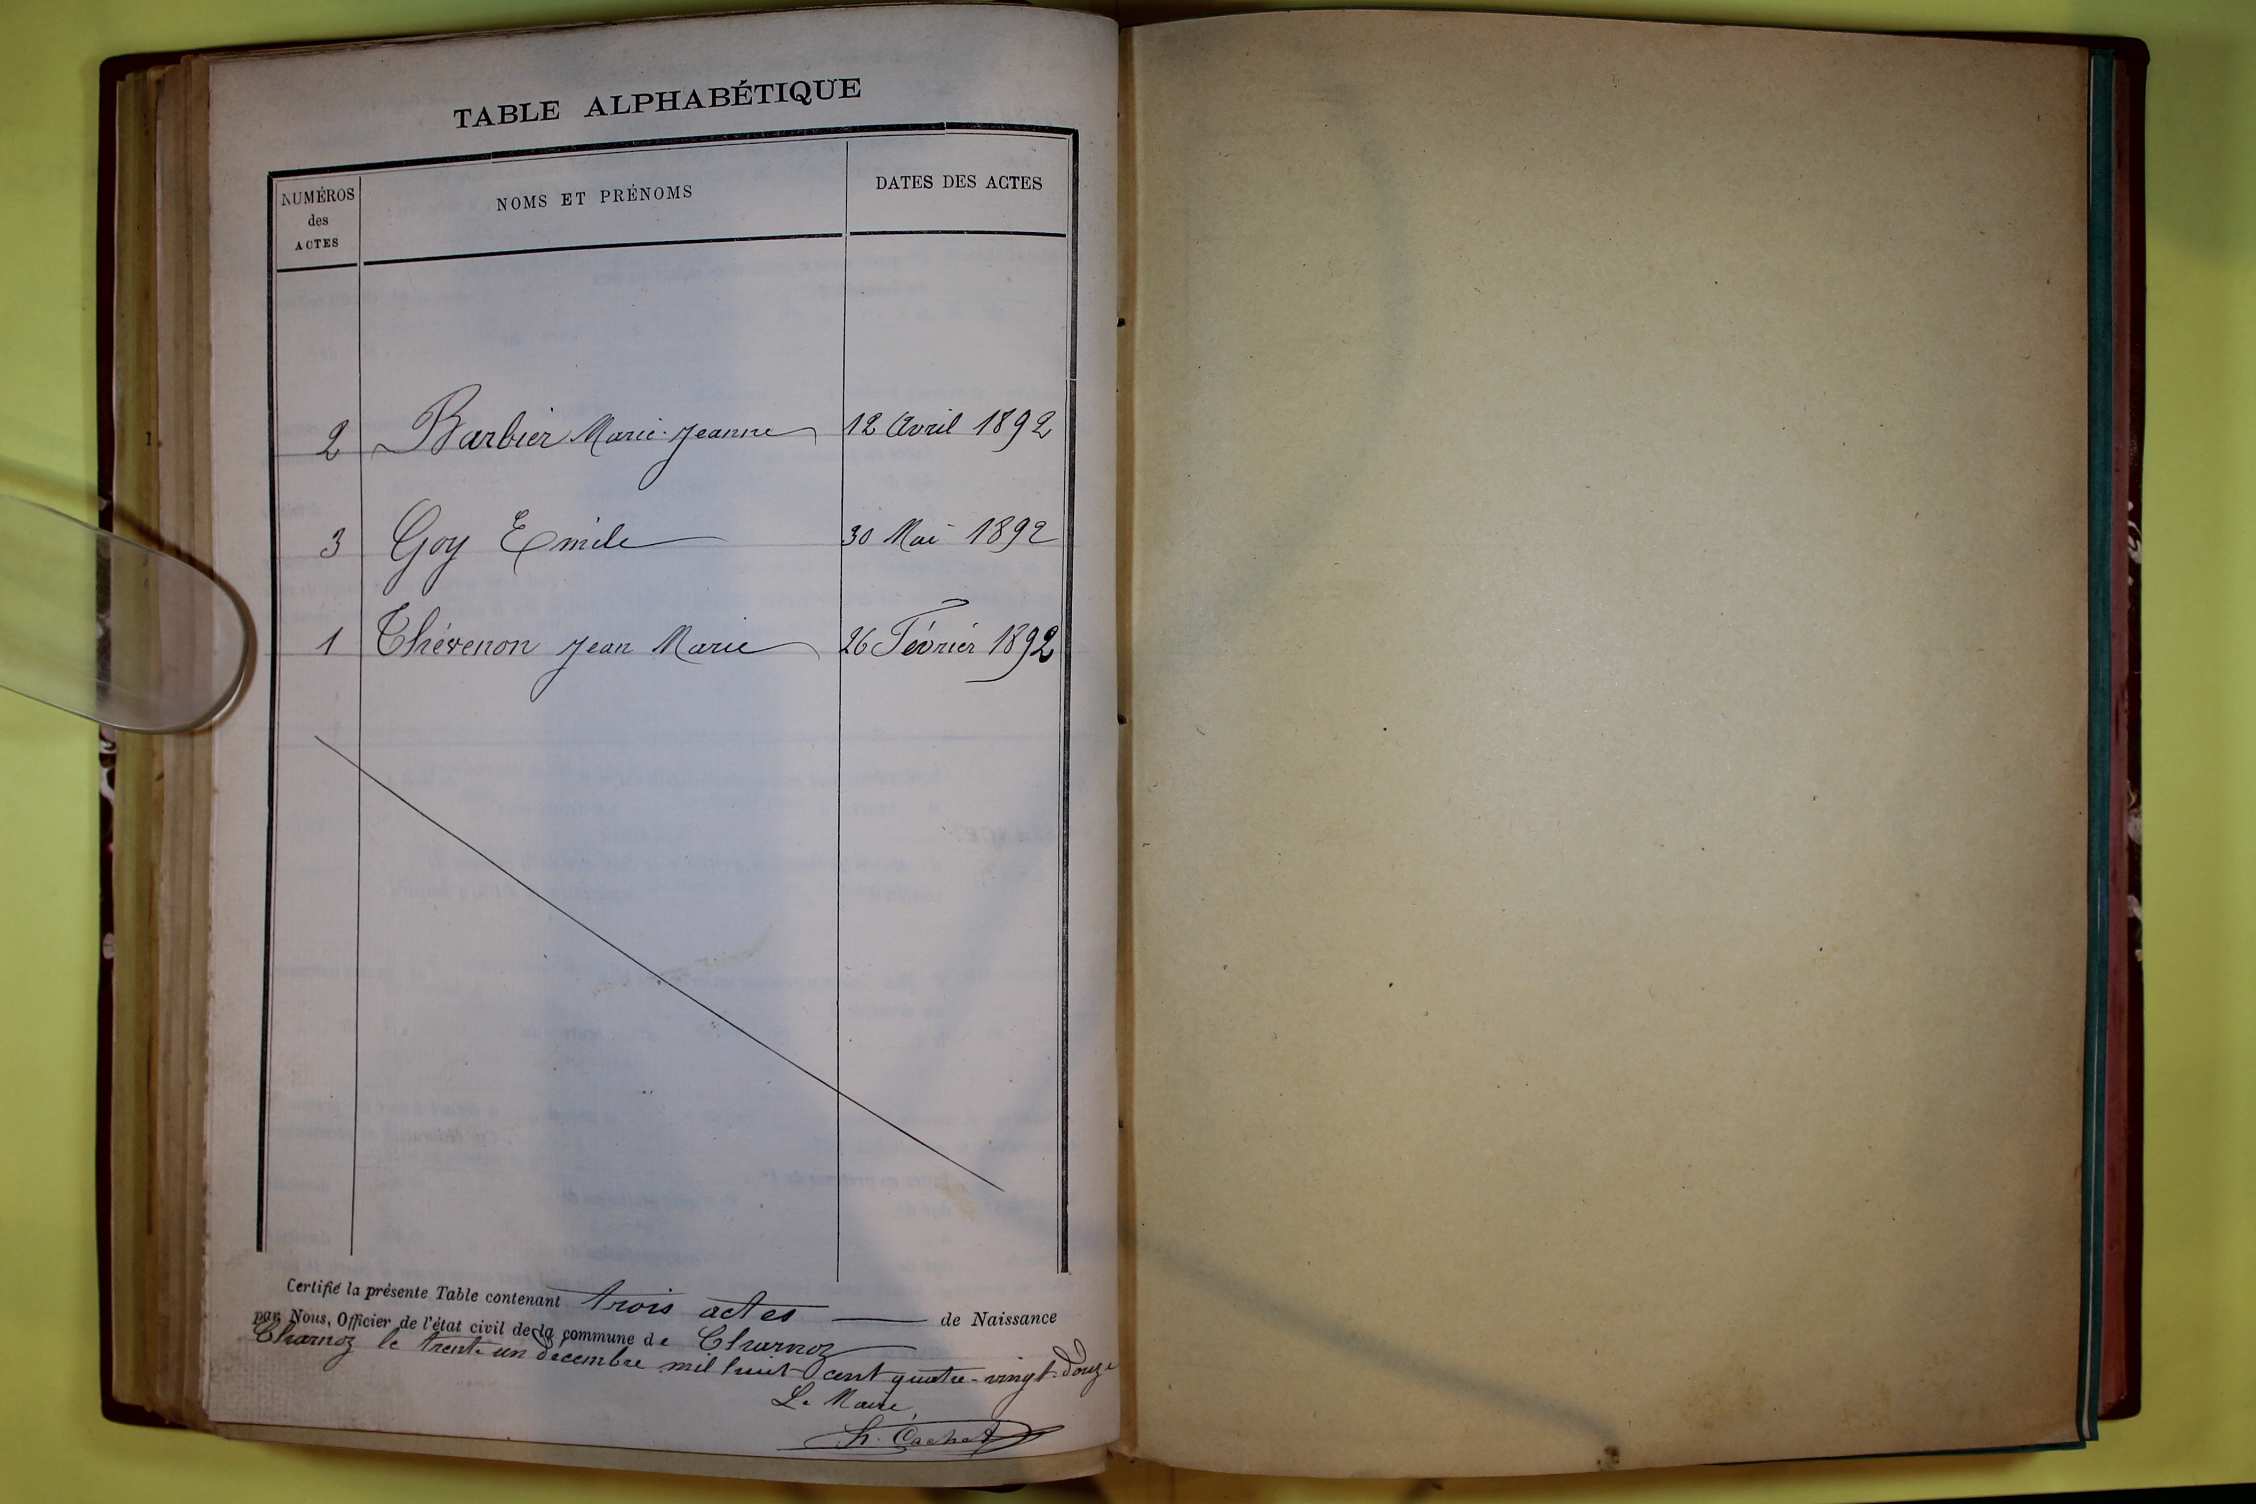 TABLE ALPHABÉTIQUE
NUMÉROS des ACTES
NOMS ET PRÉNOMS
DATES DES ACTES
2 Barbier Marie-Jeanne 12 Avril 1892
3 Goy Emile 30 Mai 1892
1 Thévenon Jean Marie 26 Février 1892
Certifié la présente Table contenant trois actes de Naissance
par Nous, Officier de l'état civil de la commune de Charnoz
Charnoz le trente un décembre mil huit cent quatre-vingt-douze
Le Maire,
Cachet